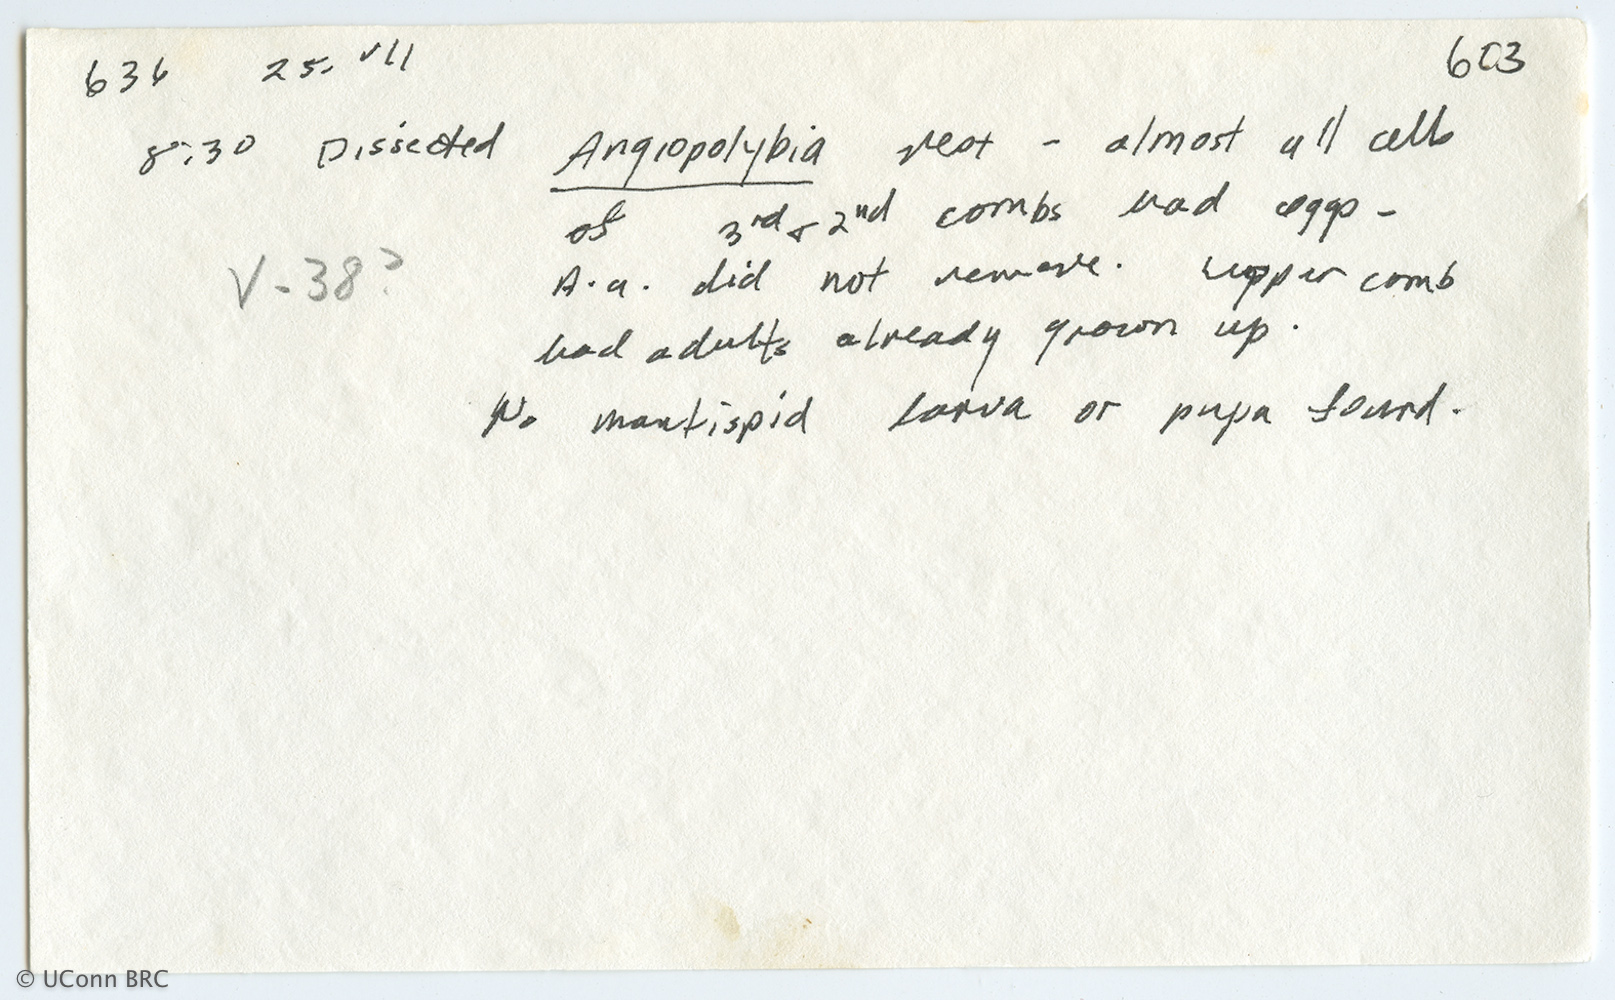 636 25. VII 603
8:30 Dissected Angiopolybia nest - almost all cells
of 3rd & 2nd combs had eggs -
V-38?
A.a. did not remove. Upper comb
had adults already grown up.
No mantispid larva or pupa found.
© UConn BRC